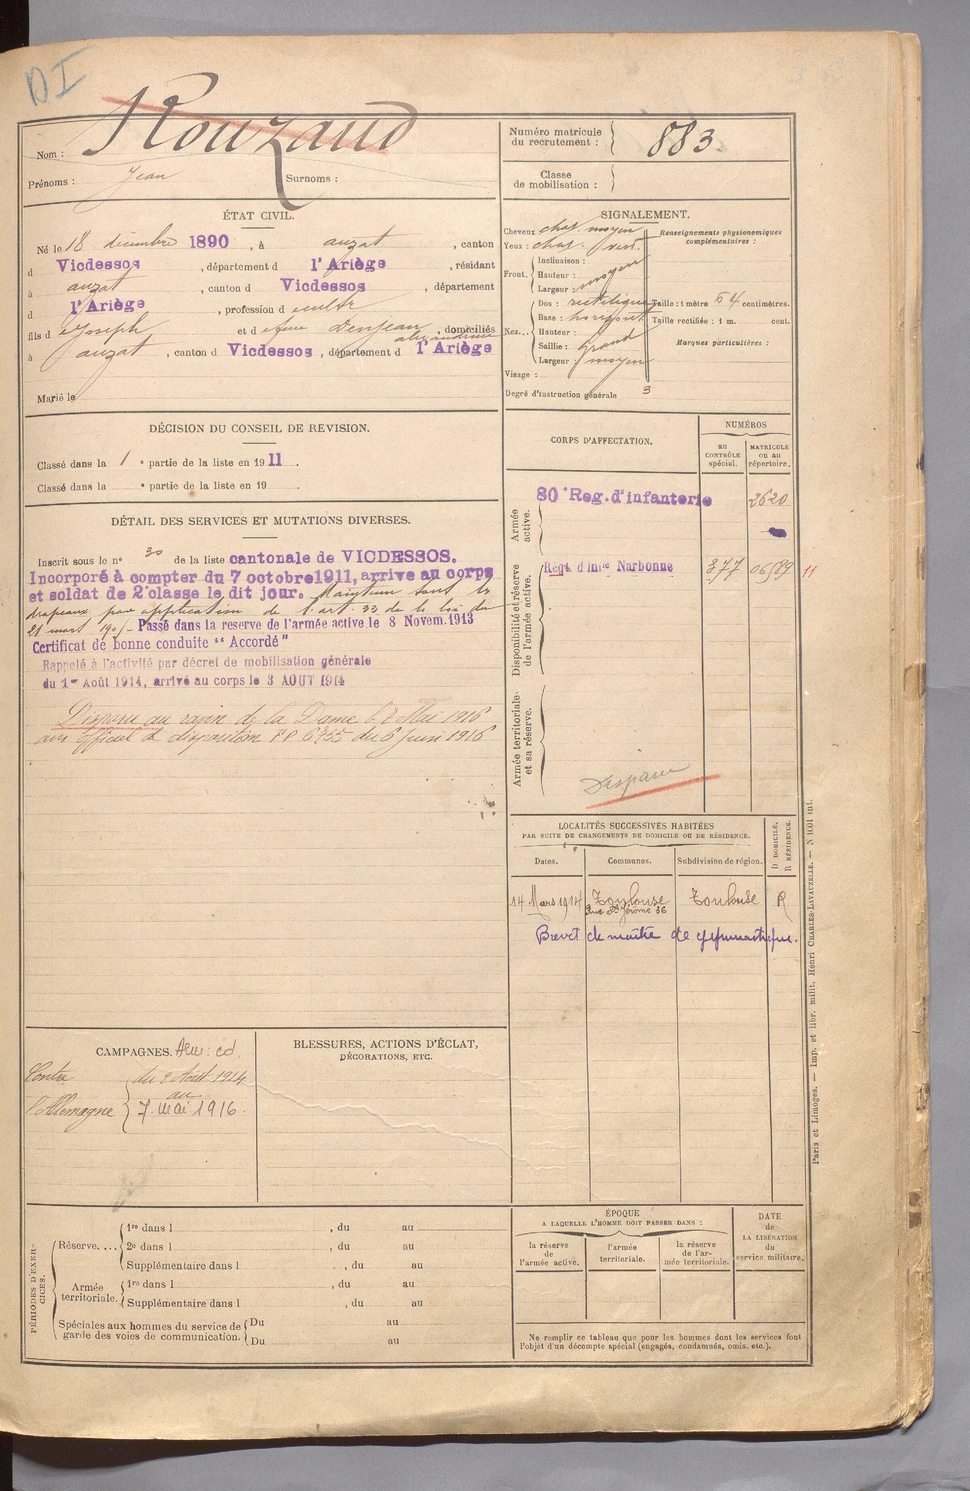 DI
Nom : Rouzaud
Prénoms : Jean Surnoms :
Numéro matricule du recrutement : 883.
Classe de mobilisation :
ÉTAT CIVIL.
Né le 18 décembre 1890, à auzat, canton
d Vicdessos, département d l'Ariège, résidant
à auzat, canton d Vicdessos, département
d l'Ariège, profession de cultr
fils d Joseph et d Denjean alexandrine, domiciliés
à auzat, canton d Vicdessos, département d l'Ariège
Marié le
SIGNALEMENT.
Cheveux chat. moyen
Yeux : chat. vert.
Front. Inclinaison :
Hauteur : moyen
Largeur :
Nez. Dos : rectiligne
Base : horizont
Hauteur :
Saillie : grand
Largeur : moyen
Visage :
Degré d'instruction générale 3
Renseignements physionomiques complémentaires :
Taille : 1 mètre 64 centimètres.
Taille rectifiée : 1 m. cent.
Marques particulières :
DÉCISION DU CONSEIL DE REVISION.
Classé dans la 1 e partie de la liste en 1911.
Classé dans la e partie de la liste en 19 .
DÉTAIL DES SERVICES ET MUTATIONS DIVERSES.
Inscrit sous le n° 30 de la liste cantonale de VICDESSOS.
Incorporé à compter du 7 octobre 1911, arrive au corps
et soldat de 2e classe le dit jour. Maintenu sous les
drapeaux par application de l'art. 33 de la loi du
21 mart 190 Passé dans la reserve de l'armée active, le 8 Novem. 1913
Certificat de bonne conduite "Accordé"
Rappelé à l'activité par décret de mobilisation générale
du 1er Août 1914, arrivé au corps le 3 AOUT 1914
Disparu au ravin de la Dame le 8 Mai 1916
avis officiel de disparition PP 6355 du 6 juin 1916
CORPS D'AFFECTATION.
NUMÉROS
au CONTRÔLE spécial.
MATRICULE ou au répertoire.
Armée active.
80e Reg. d'infanterie 2620
Disponibilité et réserve de l'armée active.
Régt d'infie Narbonne 377 06589 11
Armée territoriale et sa réserve.
Disparu
LOCALITÉS SUCCESSIVES HABITÉES
PAR SUITE DE CHANGEMENTS DE DOMICILE OU DE RÉSIDENCE.
Dates. Communes. Subdivision de région. D DOMICILE, R RÉSIDENCE.
14 Mars 1914 Toulouse Toulouse R
Rue St Jérôme 36
Brevet de maître de gymnastique.
CAMPAGNES.
Contre l'Allemagne du 2 Août 1914
au
7 mai 1916.
BLESSURES, ACTIONS D'ÉCLAT,
DÉCORATIONS, ETC.
PÉRIODES D'EXERCICES.
Réserve.... 1re dans l , du au
2e dans l , du au
Supplémentaire dans l , du au
Armée territoriale. 1re dans l , du au
Supplémentaire dans l , du au
Spéciales aux hommes du service de garde des voies de communication. Du au
Du au
ÉPOQUE
A LAQUELLE L'HOMME DOIT PASSER DANS :
la réserve de l'armée active.
l'armée territoriale.
la réserve de l'armée territoriale.
DATE de LA LIBÉRATION du service militaire.
Ne remplir ce tableau que pour les hommes dont les services font
l'objet d'un décompte spécial (engagés, condamnés, omis, etc.).
Paris et Limoges. — Imp. et libr. milit. Henri CHARLES-LAVAUZELLE. — N 1001 int.